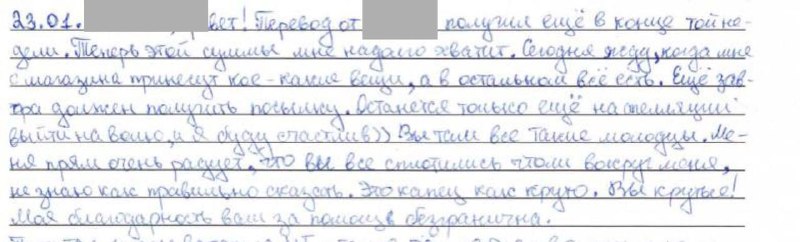 23.01. вет! Перевод от получил ещё в конце той не-
дели. Теперь этой суммы мне надолго хватит. Сегодня жду, когда мне
с магазина принесут кое-какие вещи, а в остальном всё есть. Ещё зав-
тра должен получить посылку. Останется только ещё на апелляции
выйти на волю, и я буду счастлив)) Вы там все такие молодцы. Ме-
ня прям очень радует, что вы все сплотились что ли вокруг меня,
не знаю как правильно сказать. Это капец как круто. Вы крутые!
Моя благодарность вам за помощь безгранична.